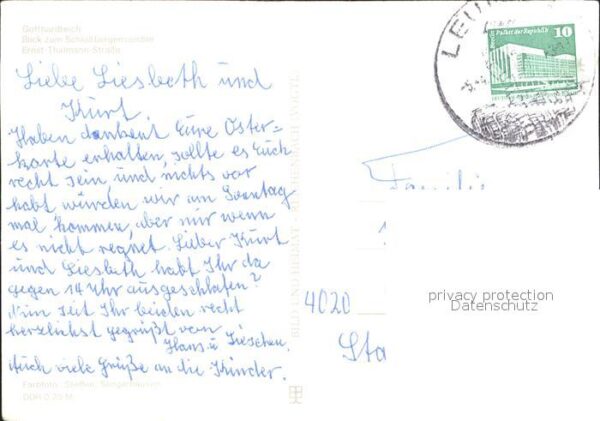 Gotthardteich
Blick zum Schloß
Ernst-Thälmann-Straße
Liebe Liesbeth und
Kurt.
Haben dankend Eure Oster=
karte erhalten, sollte es Euch
recht sein und nichts vor
habt würden wir am Sonntag
mal kommen, aber nur wenn
es nicht regnet. Lieber Kurt
und Liesbeth habt Ihr da
gegen 14 Uhr ausgeschlafen?
Nun seit Ihr beiden recht
herzlichst gegrüßt von
Hans u. Lieschen.
Auch viele Grüße an die Kinder.
Farbfoto: Steffen,
DDR 0,20 M
BILD UND HEIMAT
LEU
Palast der Republik
10
Familie
4020
Sta
privacy protection
Datenschutz